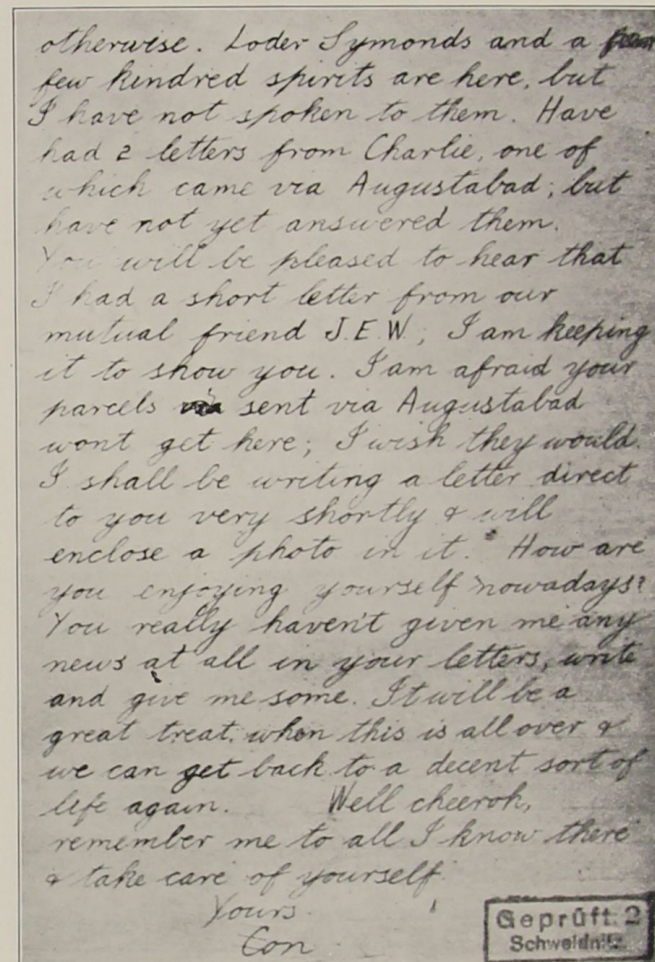 otherwise. Loder Symonds and a
few kindred spirits are here, but
I have not spoken to them. Have
had 2 letters from Charlie, one of
which came via Augustabad; but
have not yet answered them.
You will be pleased to hear that
I had a short letter from our
mutual friend J.E.W; I am keeping
it to show you. I am afraid your
parcels sent via Augustabad
wont get here; I wish they would.
I shall be writing a letter direct
to you very shortly & will
enclose a photo in it. How are
you enjoying yourself nowadays?
You really haven't given me any
news at all in your letters, write
and give me some. It will be a
great treat. when this is all over &
we can get back to a decent sort of
life again. Well cheeroh,
remember me to all I know there
& take care of yourself.
Yours
Con
Geprüft: 2
Schweidnitz